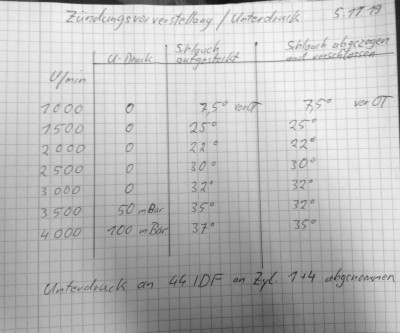 Zündungsvorverstellung / Unterdruck 5.11.19
U/min U-Druck Schlauch aufgesteckt Schlauch abgezogen und verschlossen
1000 0 7,5° vor OT 7,5° vor OT
1500 0 25° 25°
2000 0 22° 22°
2500 0 30° 30°
3000 0 32° 32°
3500 50 mBar 35° 32°
4000 100 mBar 37° 35°
Unterdruck an 44 IDF an Zyl. 1+4 abgenommen